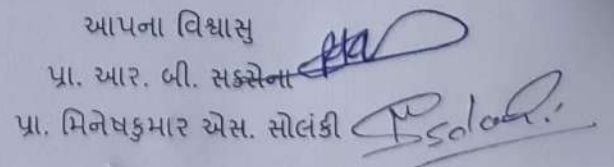 આપના વિશ્વાસુ
પ્રા. આર. બી. સક્સેના
પ્રા. મિનેષકુમાર એસ. સોલંકી